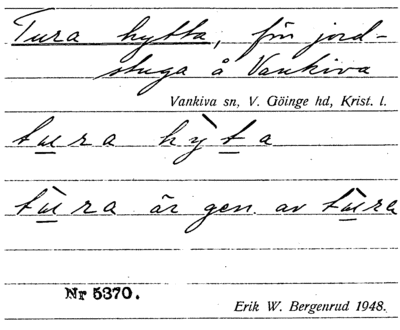 Tura hytta, förr jord-
stuga å Vankiva
Vankiva sn, V. Göinge hd, Krist. l.
tu̲ra hỳt̲a
tù̲ra är gen. av tù̲re
Nr 5370.
Erik W. Bergenrud 1948.